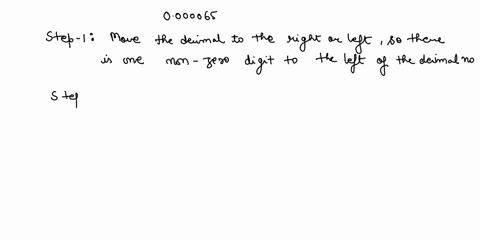 0.000065
Step-1: Move the decimal to the right or left, so there
is one non-zero digit to the left of the decimal no
Step